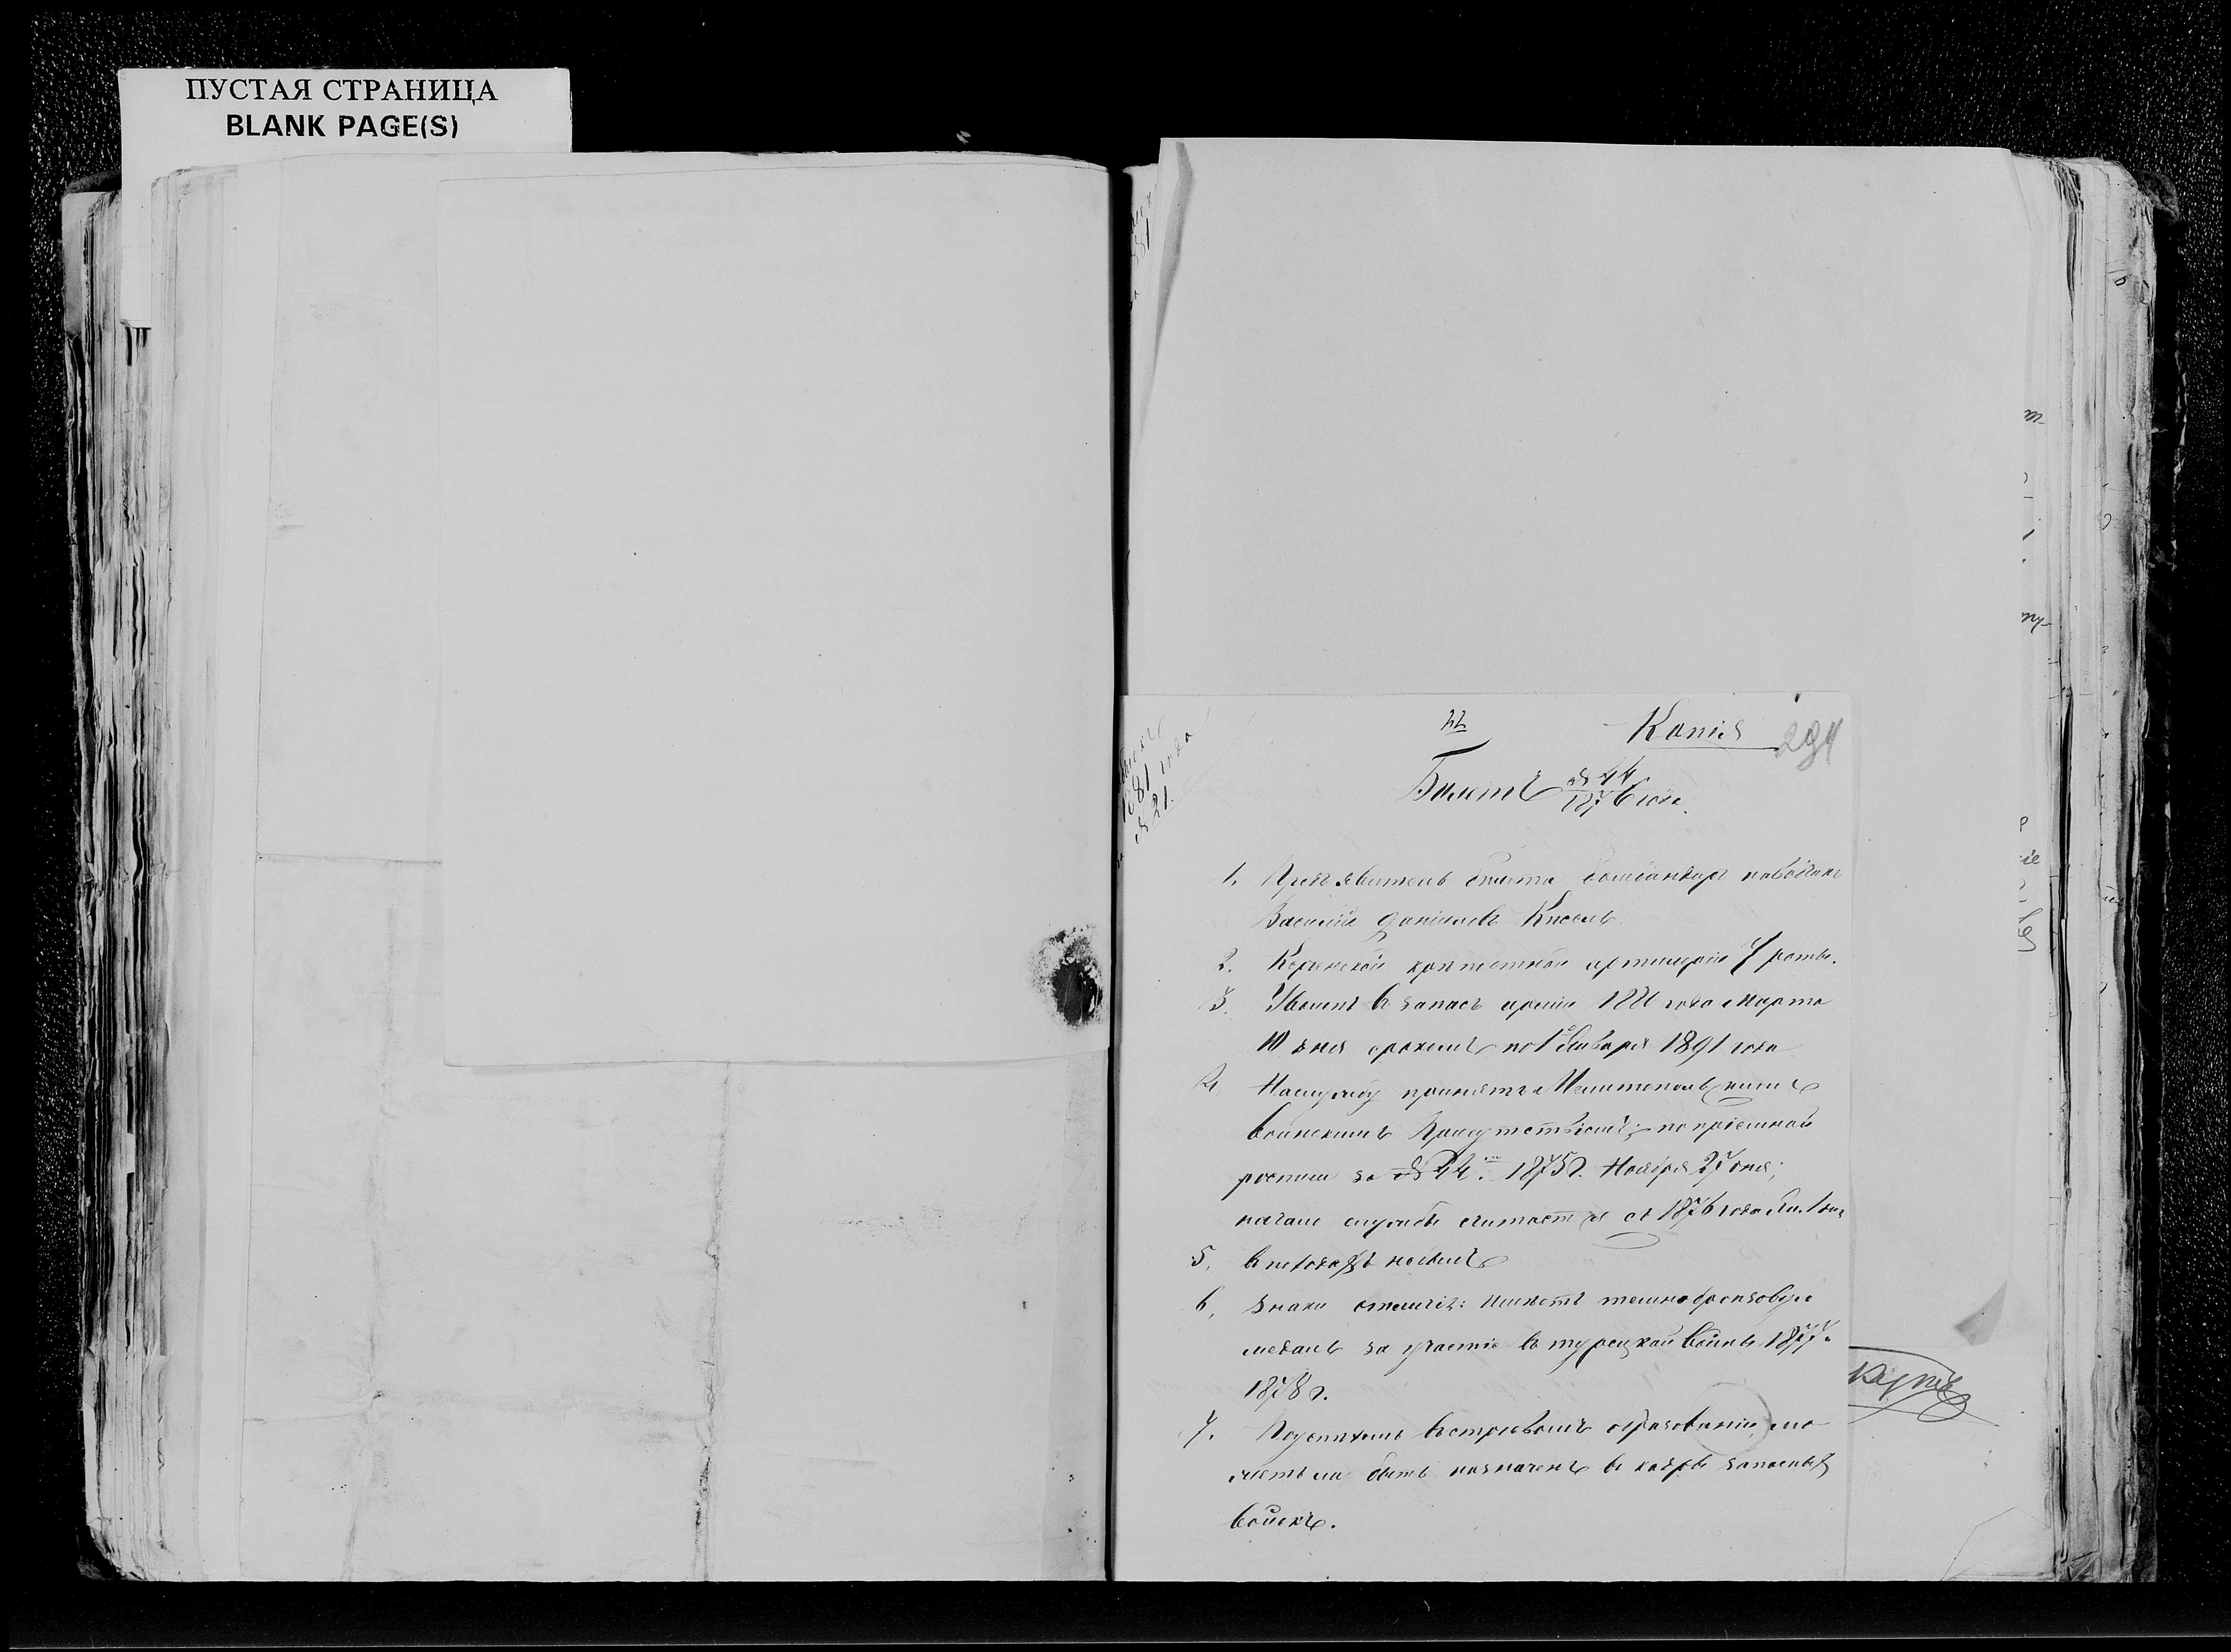 ПУСТАЯ СТРАНИЦА
BLANK PAGE(S)
22
Копія
Билетъ № 44
1876 года.
1. Предъявитель билета бомбандиръ наводчикъ
Василій Даниловъ Кисель
2. Керченской крѣпостной артиллеріи 7 роты.
3. Уволенъ въ запасъ арміи года Марта
10 дня срокомъ по 1е Января 1891 года
4. На службу принятъ Мелитопольскимъ
воинскимъ Присутствіемъ; по пріемной
росписи за № 1875 г. Ноября 27 дня;
начало службы считается съ 1876 года Ян. 1 дня
5. въ походахъ
6. Знаки отличія: имѣетъ темнобронзовую
медаль за участіе въ турецкой войнѣ 1877-
1878 г.
7. По успѣхамъ въ строевомъ образованіи, мо
жетъ ли быть назначенъ въ кадры запасныхъ
войскъ.